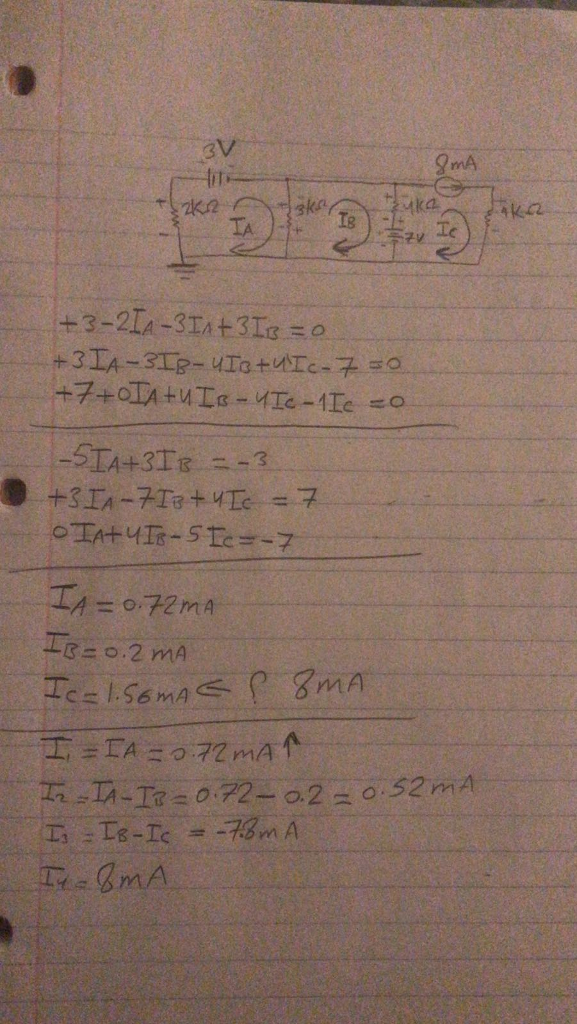 3V
8mA
2kΩ
IA
3kΩ
IB
4kΩ
7V
IC
1kΩ
+3-2IA-3IA+3IB=0
+3IA-3IB-4IB+4IC-7=0
+7+0IA+4IB-4IC-1IC=0
-5IA+3IB=-3
+3IA-7IB+4IC=7
0IA+4IB-5IC=-7
IA=0.72mA
IB=0.2mA
IC=1.56mA← ? 8mA
I1=IA=0.72mA↑
I2=IA-IB=0.72-0.2=0.52mA
I3=IB-IC=-7.8mA
I4=8mA